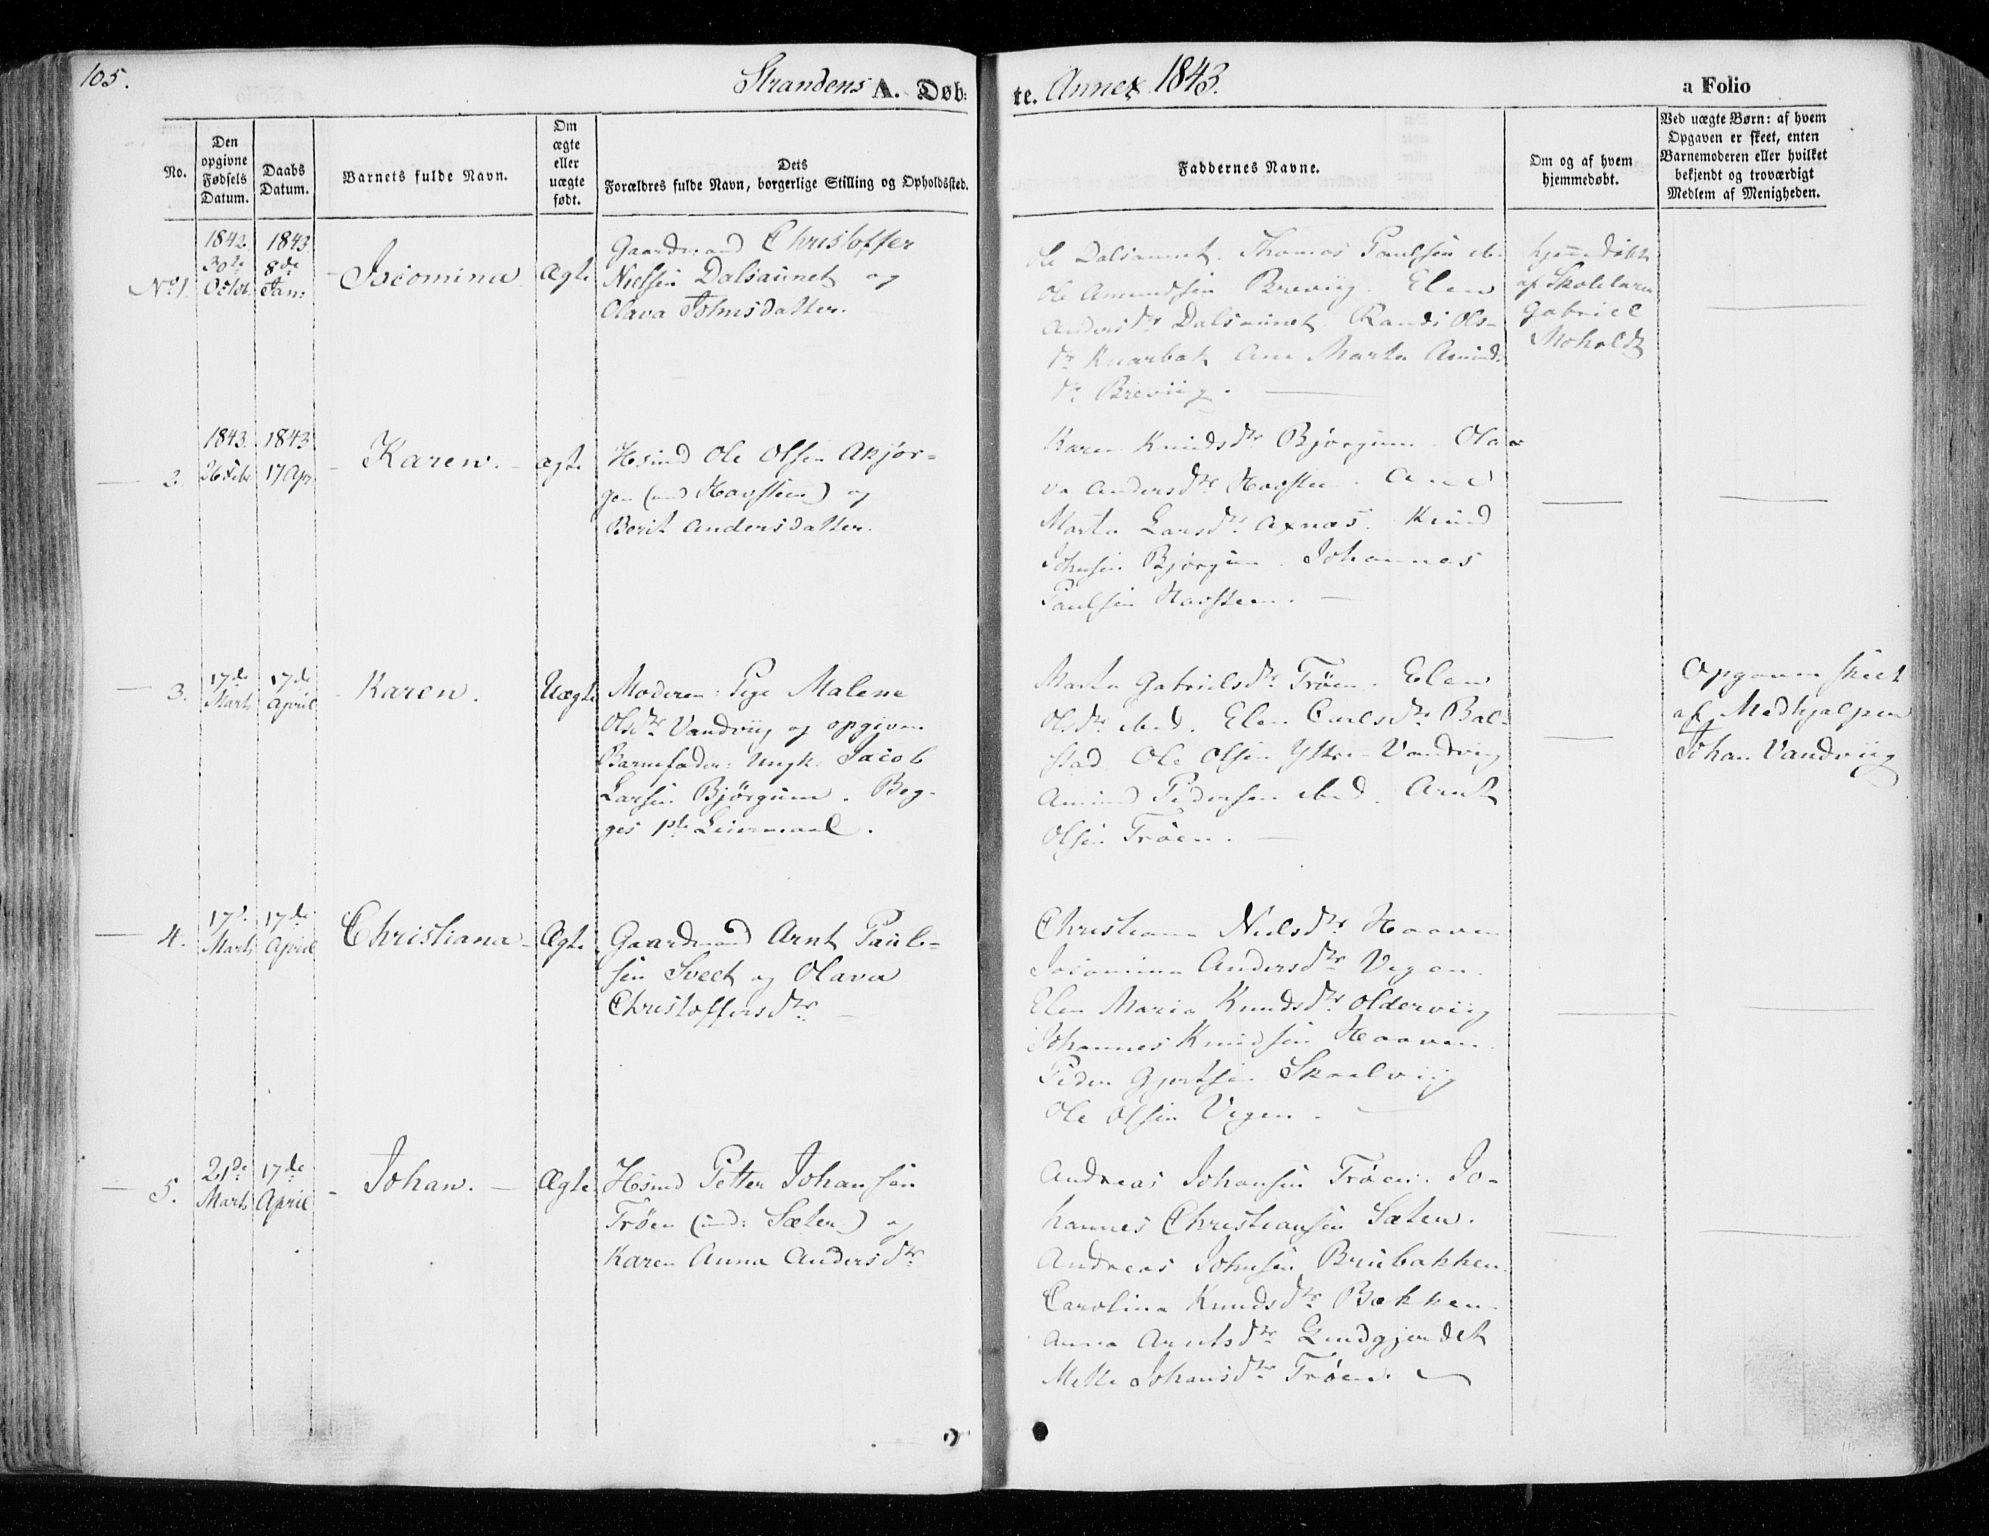 105.
Strandens A. Døb:
te. Annex 1843.
a Folio
No.
Den
opgivne
Fødsels
Datum.
Daabs
Datum.
Barnets fulde Navn.
Om
ægte
eller
uægte
født.
Dets
Forældres fulde Navn, borgerlige Stilling og Opholdssted.
Faddernes Navne.
Om og af hvem
hjemmedøbt.
Ved uægte Børn: af hvem
Opgaven er skeet, enten
Barnemoderen eller hvilket
bekjendt og troværdigt
Medlem af Menigheden.
No 1.
1842.
30te
Octbr.
1843
8de
Jan:
Jacomina
Ægte
Gaardmand Christoffer
Nielsen Dalsaunet og
Olava Johnsdatter.
Ole Dalsaunet. Thomas Paulsen ibd.
Ole Amundsen Breviig. Elen
Andersdtr Dalsaunet. Randi Ols-
dtr Knarbak Ane Marta Amunds
dtr Breviig.
hjemedøbt
af Skolelærer
Gabriel
Moholdt
2.
1843.
26 Febr
1843
17 Apr
Karen.
ægte
Hsmd Ole Olsen Akjør-
gen (und Havsteen) og
Berit Andersdatter.
Karen Knudsdtr Bjørgum. Ola-
va Andersdtr Havsteen. Ane
Marta Larsdtr Axnæs. Knud
Johnsen Bjørgum. Johannes
Paulsen Havsteen.
3.
17de
Marts
17de
April
Karen.
Uægte
Moderen: Pige Malene
Olsdtr Vandviig og opgiven
Barnefader: Ungk. Jacob
Larsen Bjørgum. Beg-
ges 1ste Leiermaal.
Marta Gabrielsdtr Trøen. Elen
Olsdtr ibid. Elen Carlsdtr Bal-
stad. Ole Olsen Ytre-Vandviig
Amund Pedersen ibid. Arnt
Olsen Trøen.
Opgaven skeet
af Medhjelper
Johan Vandviig
4.
17de
Marts
17de
April
Christiana
Ægte
Gaardmand Arnt Paul-
sen Sveet og Olava
Christoffersdtr
Christiana Nielsdtr Haaven
Jacomina Andersdtr Vegen.
Elen Maria Knudsdtr Olderviig
Johannes Knudsen Haaven.
Peder Gjertsen Skaelviig
Ole Olsen Vegen.
5.
21de
Marts
17de
April
Johan.
Ægte
Hsmd Petter Johansen
Trøen (und: Sæter) og
Karen Anna Andersdtr
Andreas Johansen Trøen. Jo-
hannes Christiansen Sæter.
Andreas Johnsen Brubakken
Carolina Knudsdtr Bækken
Anna Arntsdtr
Mette Johansdtr Trøen.